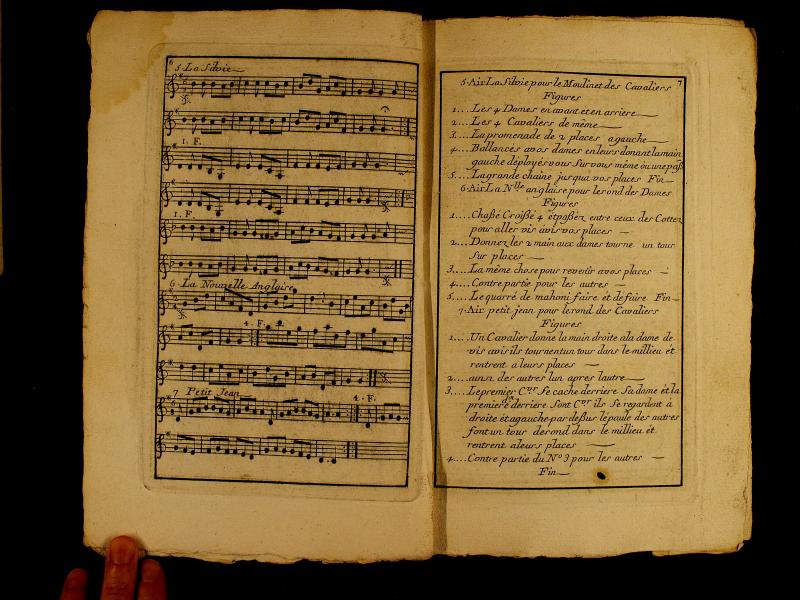 6
5. La Silvie
1. F.
1. F.
6. La Nouvelle Anglaise
4. F.
7 Petit Jean
4. F.
7
5. Air La Silvie pour le Moulinet des Cavaliers
Figures
1.... Les 4 Dames en avant et en arriere
2.... Les 4 Cavaliers de même
3.... La promenade de 2 places agauche
4.... Ballancés avos dames en leurs donant la main
gauche déployés vous Sur vous même ou une paß
5.... La grande chaine jusqua vos places Fin
6. Air La Nlle anglaise pour le rond des Dames
Figures
1.... Chaßé Croißé 4 et paßéz entre ceux des Cottez
pour aller vis avis vos places
2.... Donnez les 2 main aux dames tourne un tour
Sur places
3.... La même chose pour revenir avos places
4.... Contre partie pour les autres
5.... Le quarré de mahoni faire et défaire Fin
7. Air petit jean pour le rond des Cavaliers
Figures
1.... Un Cavalier donne la main droite ala dame de
vis avis ils tournent un tour dans le millieu et
rentrent a leurs places
2.... ausi des autres lun après lautre
3.... Le premier Cer Se cache derriere Sa dame et la
premiere derriere Sont Cer ils Se regardent à
droite et agauche par deßus lépaule des autres
font un tour de rond dans le millieu et
rentrent aleurs places
4.... Contre partie du No 3 pour les autres
Fin